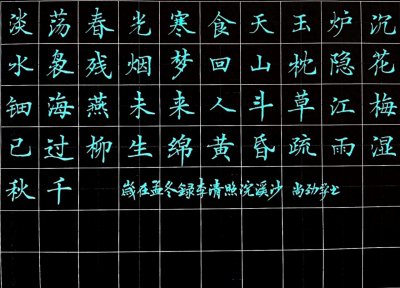 淡荡春光寒食天玉炉沉
水袅残烟梦回山枕隐花
钿海燕未来人斗草江梅
已过柳生绵黄昏疏雨湿
秋千 歲在孟冬録李清照浣溪沙 尚